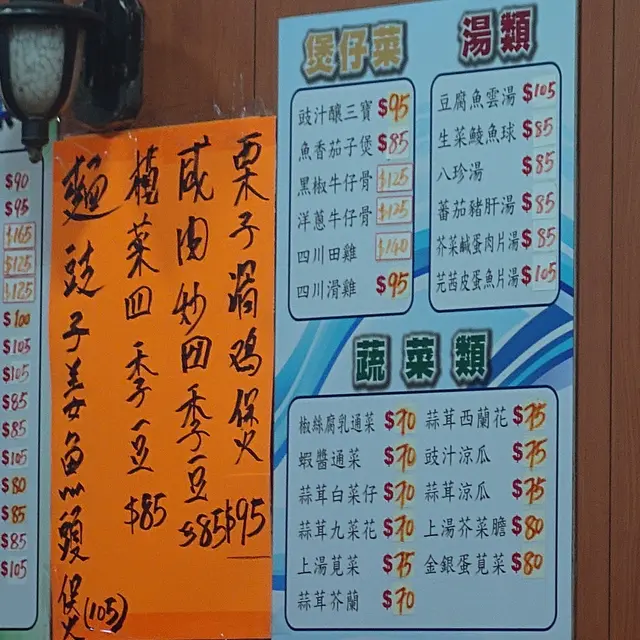 $90
$95
$165
$125
$125
$100
$105
$105
$85
$85
$105
$80
$85
$85
$105
栗子滑鸡保火 $95
咸肉炒四季豆 $85
榄菜四季豆 $85
麵豉子姜魚頭保火 (105)
煲仔菜
豉汁釀三寶 $95
魚香茄子煲 $85
黑椒牛仔骨 $125
洋蔥牛仔骨 $125
四川田雞 $140
四川滑雞 $95
湯類
豆腐魚雲湯 $105
生菜鯪魚球 $85
八珍湯 $85
蕃茄豬肝湯 $85
芥菜鹹蛋肉片湯 $85
芫茜皮蛋魚片湯 $105
蔬菜類
椒絲腐乳通菜 $70 蒜茸西蘭花 $75
蝦醬通菜 $70 豉汁涼瓜 $75
蒜茸白菜仔 $70 蒜茸涼瓜 $75
蒜茸九菜花 $70 上湯芥菜膽 $80
上湯莧菜 $75 金銀蛋莧菜 $80
蒜茸芥蘭 $70